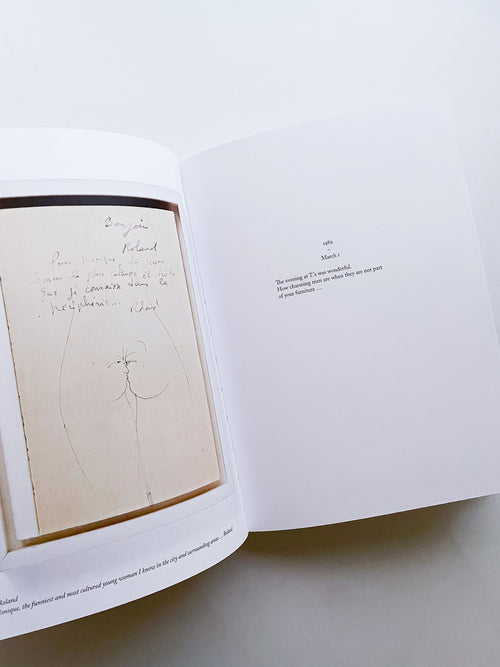 Bonjour
Roland
Pour Monique, la jeune
femme la plus cultivée et drôle
que je connaisse dans la
périphérie... Roland
Roland
onique, the funniest and most cultured young woman I know in the city and surrounding areas ... Roland
1989
–
March 1
The evening at T.'s was wonderful.
How charming men are when they are not part
of your furniture ...